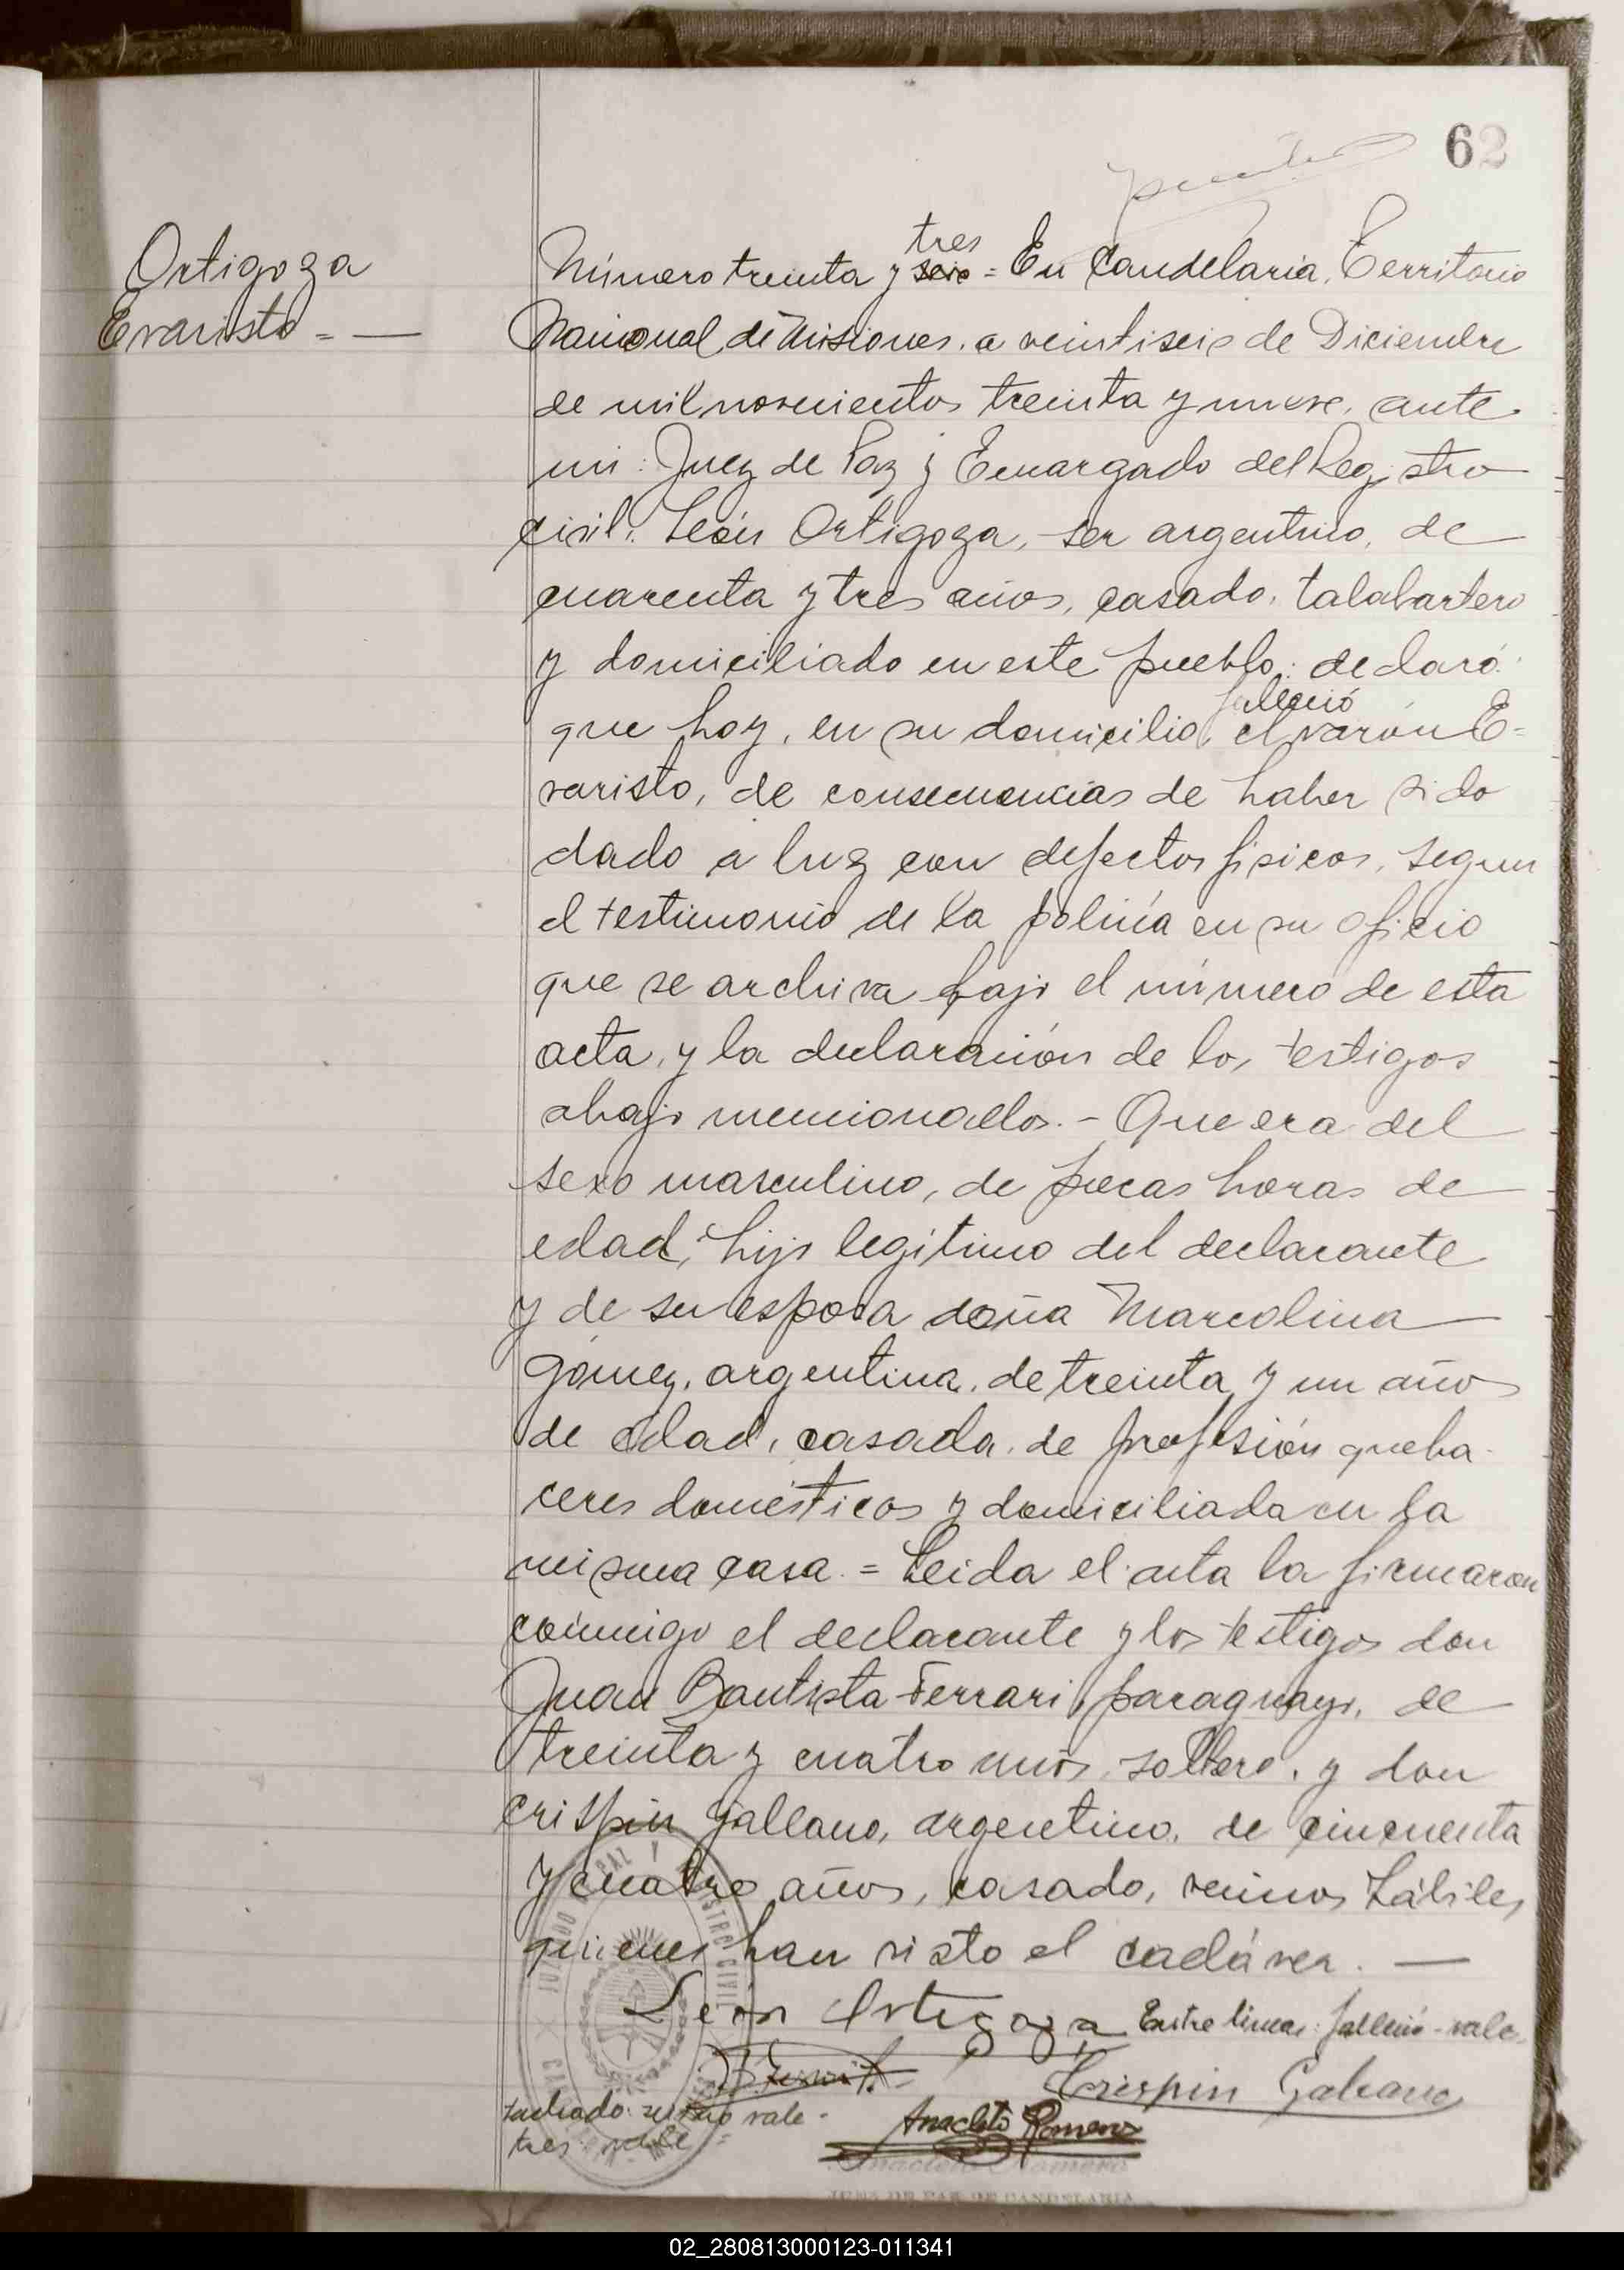 62
Ortigoza
Evaristo = —
tres
Número treinta y seis = En Candelaria, Territorio
Nacional de Misiones, a veintiseis de Diciembre
de mil novecientos treinta y nueve, ante
mi: Juez de Paz y Encargado del Registro
civil: León Ortigoza, ser argentino, de
cuarenta y tres años, casado, talabartero
y domiciliado en este pueblo: declaró:
falleció
que hoy, en su domicilio, el varón E=
varisto, de consecuencias de haber sido
dado a luz con defectos fisicos, segun
el testimonio de la policía en su oficio
que se archiva bajo el número de esta
acta, y la declaración de los testigos
abajo mencionados.- Que era del
sexo masculino, de pocas horas de
edad, hijo legítimo del declarante
y de su esposa doña Marcolina
Gómez, argentina, de treinta y un años
de edad, casada, de profesión queha-
ceres domésticos y domiciliada en la
misma casa. = Leida el acta la firmaron
conmigo el declarante y los testigos don
Juan Bautista Ferrari, paraguayo, de
treinta y cuatro años, soltero, y don
Crispin Galeano, argentino, de cincuenta
y cuatro años, casado, vecinos hábiles,
quienes han visto el cadáver. —
León Ortigoza Entre lineas: falleció - vale.
Crispin Galeano
tachado: seis no vale -
Anacleto Romero
tres: vale =
Anacleto Romero
JUEZ DE PAZ DE CANDELARIA
02_280813000123-011341